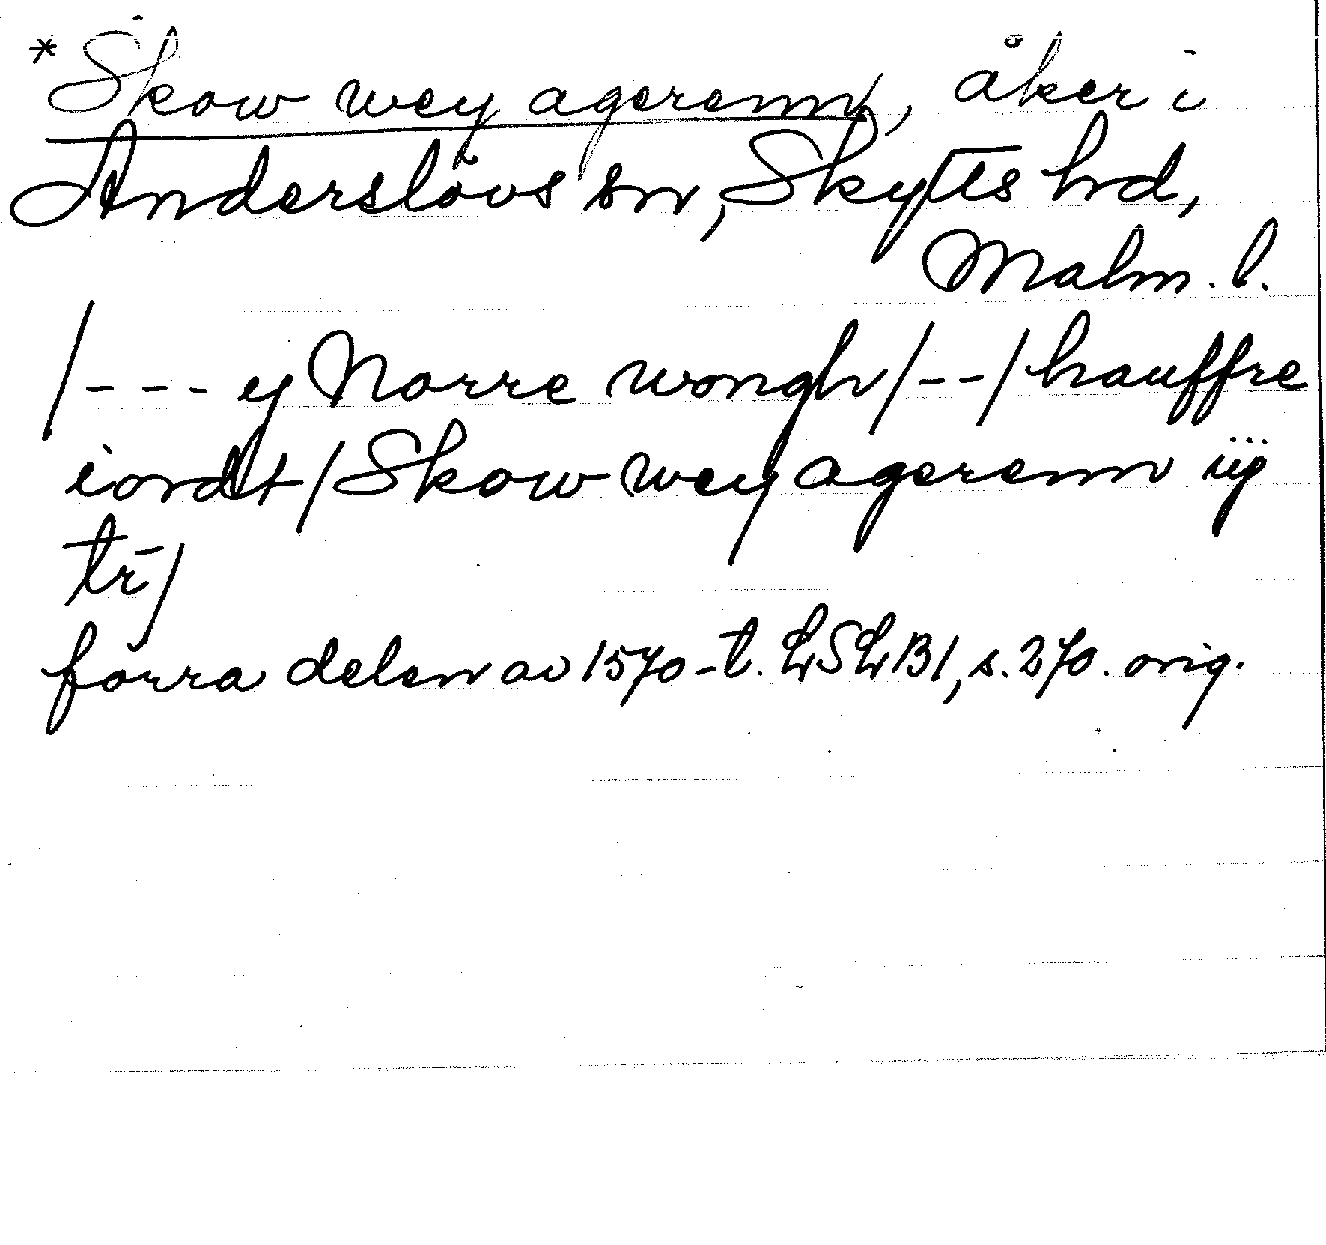 *Skow wey agerenn, åker i
Anderslövs sn, Skytts hd,
Malm. l.
/--- ij Norre wongh/--/hauffre
iordt/Skow wey agerenn iij
tr̄/
förra delen av 1570-t. LSLB1, s. 270. orig.